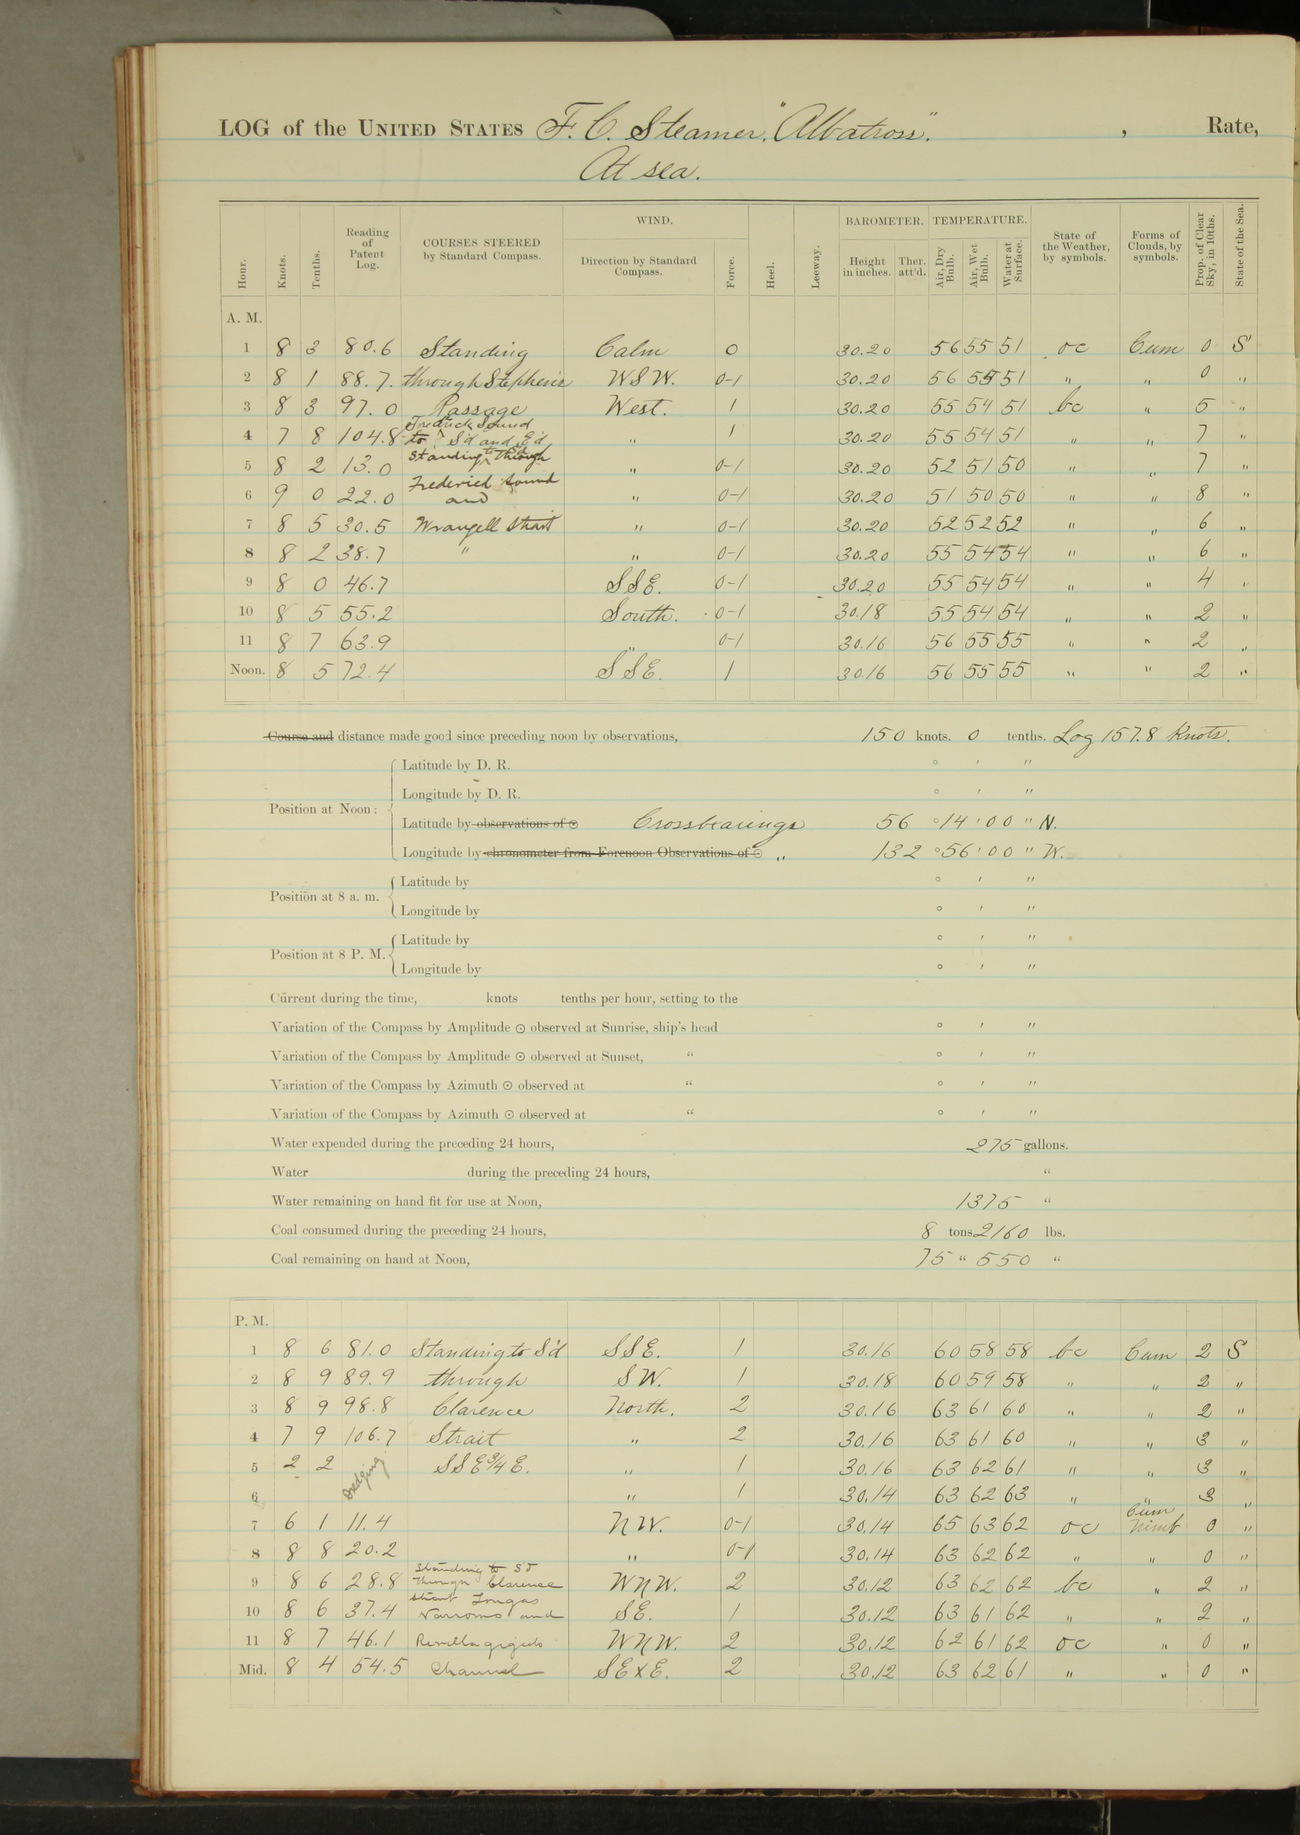 LOG of the UNITED STATES F. C. Steamer, "Albatross". , Rate,
At sea.
Hour. Knots. Tenths. Reading of Patent Log. COURSES STEERED by Standard Compass. WIND. Direction by Standard Compass. Force. Heel. Leeway. BAROMETER. Height in inches. Ther. att'd. TEMPERATURE. Air, Dry Bulb. Air, Wet Bulb. Water at Surface. State of the Weather, by symbols. Forms of Clouds, by symbols. Prop. of Clear Sky, in 10ths. State of the Sea.
A. M.
1 8 3 80.6 Standing Calm 0 30.20 56 55 51 oc Cum 0 S
2 8 1 88.7. through Stephens WSW. 0-1 30.20 56 55 51 " " 0 "
3 8 3 97.0 Passage West. 1 30.20 55 54 51 bc " 5 "
Fredrick Sound
4 7 8 104.8 to S'd and E'd " 1 30.20 55 54 51 " " 7 "
5 8 2 13.0 Standing to S'd through " 0-1 30.20 52 51 50 " " 7 "
6 9 0 22.0 Frederick Sound and " 0-1 30.20 51 50 50 " " 8 "
7 8 5 30.5 Wrangell Strait " 0-1 30.20 52 52 52 " " 6 "
8 8 2 38.7 " " 0-1 30.20 55 54 54 " " 6 "
9 8 0 46.7 SSE. 0-1 30.20 55 54 54 " " 4 "
10 8 5 55.2 South. 0-1 30.18 55 54 54 " " 2 "
11 8 7 63.9 " 0-1 30.16 56 55 55 " " 2 "
Noon. 8 5 72.4 SSE. 1 30.16 56 55 55 " " 2 "
Course and distance made good since preceding noon by observations, 150 knots. 0 tenths. Log 157.8 Knots.
Latitude by D. R. ° ' "
Longitude by D. R. ° ' "
Position at Noon:
Latitude by observations of ☉ Crossbearings 56 ° 14 ' 00 " N.
Longitude by chronometer from Forenoon Observations of ☉ " 132 ° 56 ' 00 " W.
Position at 8 a. m. Latitude by ° ' "
Longitude by ° ' "
Position at 8 P. M. Latitude by ° ' "
Longitude by ° ' "
Current during the time, knots tenths per hour, setting to the
Variation of the Compass by Amplitude ☉ observed at Sunrise, ship's head ° ' "
Variation of the Compass by Amplitude ☉ observed at Sunset, " ° ' "
Variation of the Compass by Azimuth ☉ observed at " ° ' "
Variation of the Compass by Azimuth ☉ observed at " ° ' "
Water expended during the preceding 24 hours, 275 gallons.
Water during the preceding 24 hours, "
Water remaining on hand fit for use at Noon, 1375 "
Coal consumed during the preceding 24 hours, 8 tons 2160 lbs.
Coal remaining on hand at Noon, 75 " 550 "
P. M.
1 8 6 81.0 Standing to S'd SSE. 1 30.16 60 58 58 bc Cum 2 S
2 8 9 89.9 through SW. 1 30.18 60 59 58 " " 2 "
3 8 9 98.8 Clarence North. 2 30.16 63 61 60 " " 2 "
4 7 9 106.7 Strait " 2 30.16 63 61 60 " " 3 "
5 2 2 Dredging SSE 3/4 E. " 1 30.16 63 62 61 " " 3 "
6 " 1 30.14 63 62 63 " " 3 "
7 6 1 11.4 NW. 0-1 30.14 65 63 62 oc Cum Nimb 0 "
8 8 8 20.2 " 0-1 30.14 63 62 62 " " 0 "
Standing to S'd
9 8 6 28.8 through Clarence WNW. 2 30.12 63 62 62 bc " 2 "
Strait Tongas
10 8 6 37.4 Narrows and SE. 1 30.12 63 61 62 " " 2 "
11 8 7 46.1 Revillagigedo WNW. 2 30.12 62 61 62 oc " 0 "
Mid. 8 4 54.5 Channel SExE. 2 30.12 63 62 61 " " 0 "